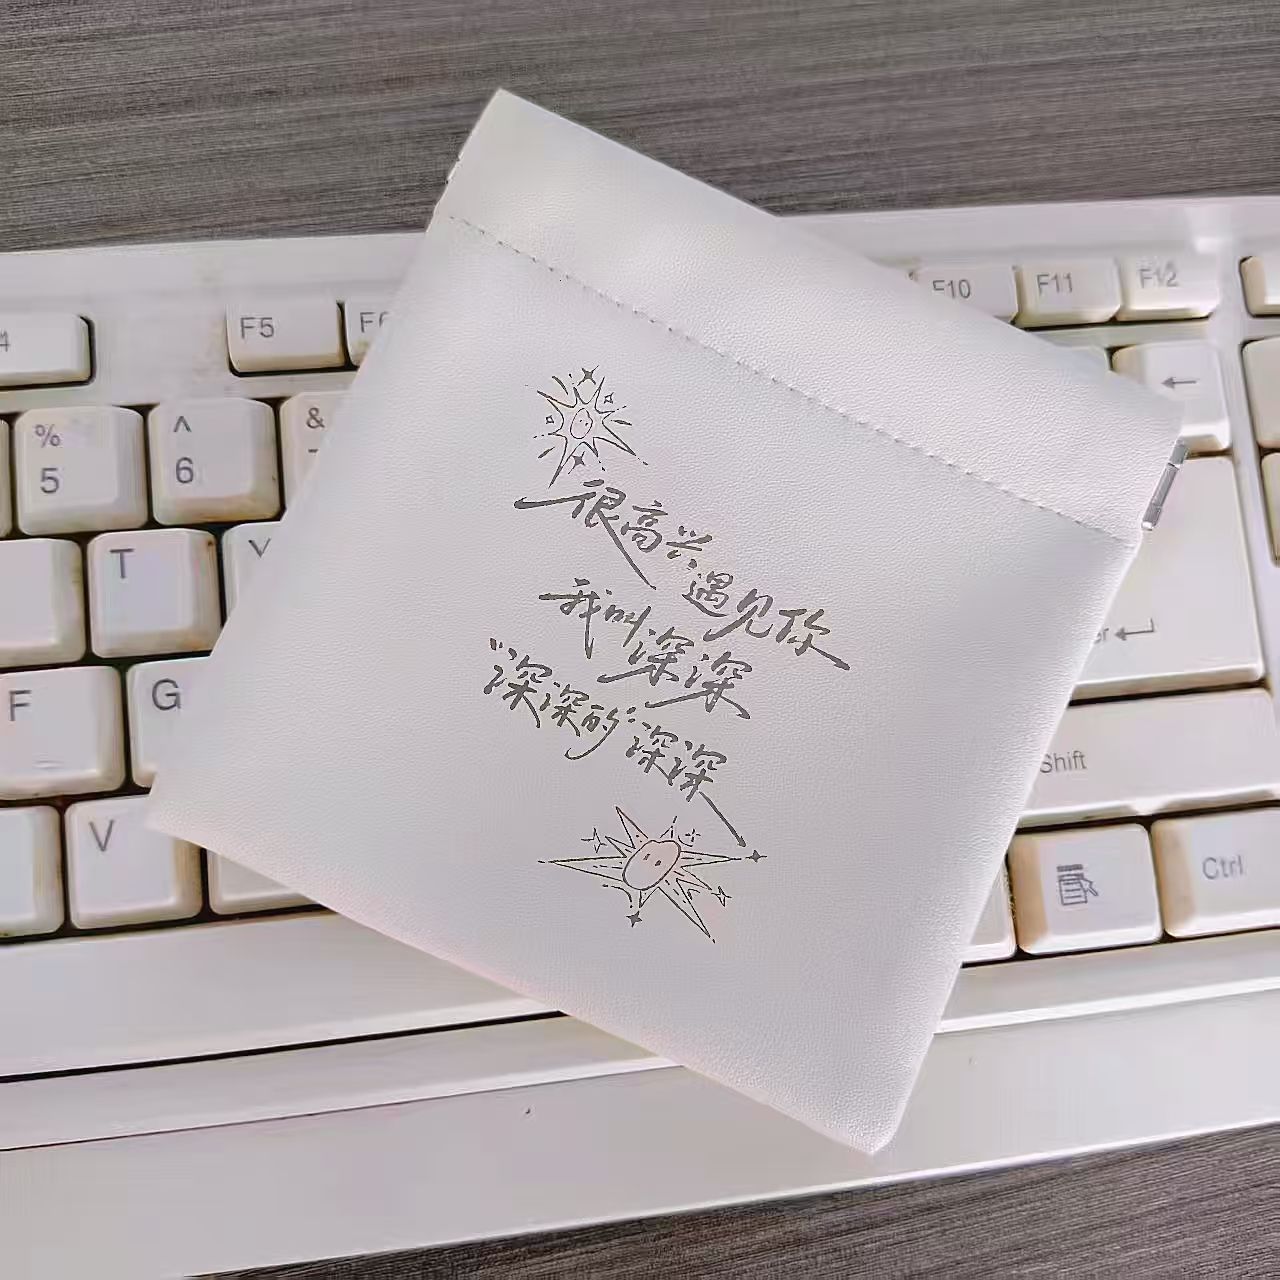 F5
F10
F11
F12
%
5
^
6
&
T
F
G
V
Shift
Ctrl
很高兴遇见你
我叫深深
"深深的"深深